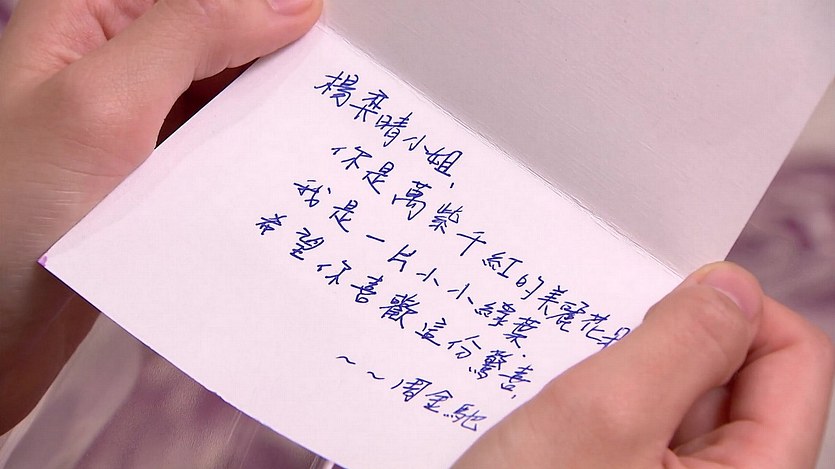 楊奕晴小姐,
你是萬紫千紅的美麗花
我是一片小小綠葉.
希望你喜歡這份驚喜.
~~周金馳